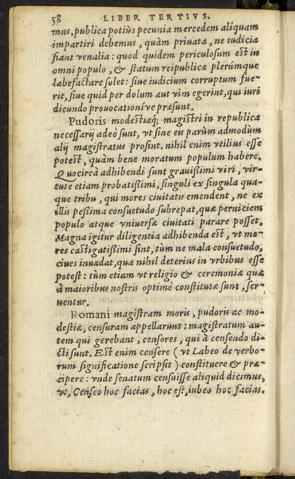 58 LIBER TERTIVS.
mus, publica potiùs pecunia mercedem aliquam
impartiri debemus, quàm priuata, ne iudicia
fiant venalia: quod quidem periculosum est in
omni populo, & statum reipublicæ plerúmque
labefactare solet: siue iudicium corruptum fue-
rit, siue quid per dolum aut vim egerint, qui iuri
dicundo prouocationíve præsunt.
Pudoris modestiæq; magistri in republica
necessarij adeò sunt, vt sine eis parùm admodùm
alij magistratus prosint. nihil enim vtilius esse
potest, quàm bene moratum populum habere.
Quocircà adhibendi sunt grauissimi viri, vir-
tute etiam probatissimi, singuli ex singula qua-
que tribu, qui mores ciuitatis emendent, ne ex
illis pessima consuetudo subrepat, quæ perniciem
populo atque vniuersæ ciuitati parare posset.
Magna igitur diligentia adhibenda est, vt mo-
res castigatissimi sint, tùm ne mala consuetudo,
ciues inuadat, qua nihil deterius in vrbibus esse
potest: tùm etiam vt religio & ceremoniæ quæ
à maioribus nostris optimè constitutæ sunt, ser-
uentur.
Romani magistram moris, pudoris ac mo-
destiæ, censuram appellarunt: magistratum au-
tem qui gerebant, censores, qui à censendo di-
cti sunt. Est enim censere (vt Labeo de verbo-
rum significatione scripsit) constituere & præ-
cipere: vnde senatum censuisse aliquid dicimus,
vt, Censeo hoc facias, hoc est, iubeo hoc facias.